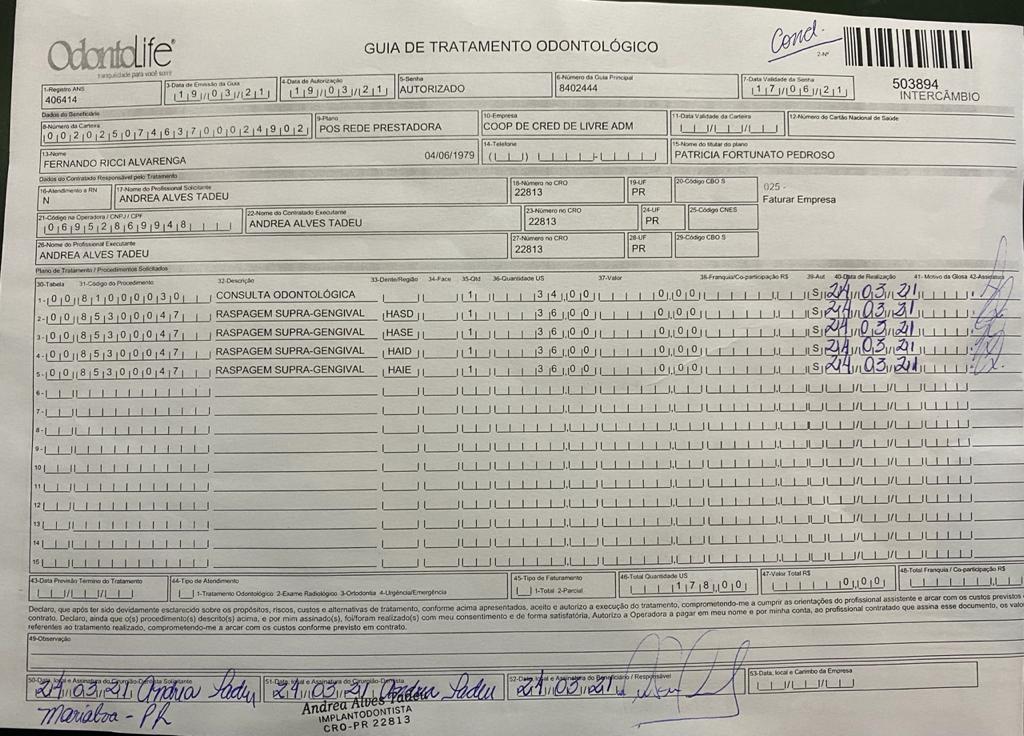 OdontoLife
tranquilidade para você sorrir
GUIA DE TRATAMENTO ODONTOLÓGICO
Concl.
2-Nº
503894
INTERCÂMBIO
1-Registro ANS
406414
3-Data de Emissão da Guia
19/03/21
4-Data de Autorização
19/03/21
5-Senha
AUTORIZADO
6-Número da Guia Principal
8402444
7-Data Validade da Senha
17/06/21
Dados do Beneficiário
8-Número da Carteira
00202507463700024902
9-Plano
POS REDE PRESTADORA
10-Empresa
COOP DE CRED DE LIVRE ADM
11-Data Validade da Carteira
12-Número do Cartão Nacional de Saúde
13-Nome
FERNANDO RICCI ALVARENGA 04/06/1979
14-Telefone
15-Nome do titular do plano
PATRICIA FORTUNATO PEDROSO
Dados do Contratado Responsável pelo Tratamento
16-Atendimento a RN
N
17-Nome do Profissional Solicitante
ANDREA ALVES TADEU
18-Número no CRO
22813
19-UF
PR
20-Código CBO S
025 -
Faturar Empresa
21-Código na Operadora / CNPJ / CPF
06952869948
22-Nome do Contratado Executante
ANDREA ALVES TADEU
23-Número no CRO
22813
24-UF
PR
25-Código CNES
26-Nome do Profissional Executante
ANDREA ALVES TADEU
27-Número no CRO
22813
28-UF
PR
29-Código CBO S
Plano de Tratamento / Procedimentos Solicitados
30-Tabela 31-Código do Procedimento 32-Descrição 33-Dente/Região 34-Face 35-Qtd 36-Quantidade US 37-Valor 38-Franquia/Co-participação R$ 39-Aut 40-Data de Realização 41- Motivo da Glosa 42-Assinatura
1- 00 81000030 CONSULTA ODONTOLÓGICA 1 34,00 0,00 S 24/03/21
2- 00 85300047 RASPAGEM SUPRA-GENGIVAL HASD 1 36,00 0,00 S 24/03/21
3- 00 85300047 RASPAGEM SUPRA-GENGIVAL HASE 1 36,00 0,00 S 24/03/21
4- 00 85300047 RASPAGEM SUPRA-GENGIVAL HAID 1 36,00 0,00 S 24/03/21
5- 00 85300047 RASPAGEM SUPRA-GENGIVAL HAIE 1 36,00 0,00 S 24/03/21
6-
7-
8-
9-
10
11
12
13
14
15
43-Data Previsão Término do Tratamento
44-Tipo de Atendimento
1-Tratamento Odontológico 2-Exame Radiológico 3-Ortodontia 4-Urgência/Emergência
45-Tipo de Faturamento
1-Total 2-Parcial
46-Total Quantidade US
178,00
47-Valor Total R$
0,00
48-Total Franquia / Co-participação R$
Declaro, que após ter sido devidamente esclarecido sobre os propósitos, riscos, custos e alternativas de tratamento, conforme acima apresentados, aceito e autorizo a execução do tratamento, comprometendo-me a cumprir as orientações do profissional assistente e arcar com os custos previstos
contrato. Declaro, ainda que o(s) procedimento(s) descrito(s) acima, e por mim assinado(s), foi/foram realizado(s) com meu consentimento e de forma satisfatória. Autorizo a Operadora a pagar em meu nome e por minha conta, ao profissional contratado que assina esse documento, os
referentes ao tratamento realizado, comprometendo-me a arcar com os custos conforme previsto em contrato.
49-Observação
50-Data, local e Assinatura do Cirurgião-Dentista Solicitante
24/03/21 Andrea Tadeu
Marialva - PR
51-Data, local e Assinatura do Cirurgião-Dentista
24/03/21 Andrea Tadeu
Andrea Alves Tadeu
IMPLANTODONTISTA
CRO-PR 22813
52-Data, local e Assinatura do Beneficiário / Responsável
24/03/21
53-Data, local e Carimbo da Empresa